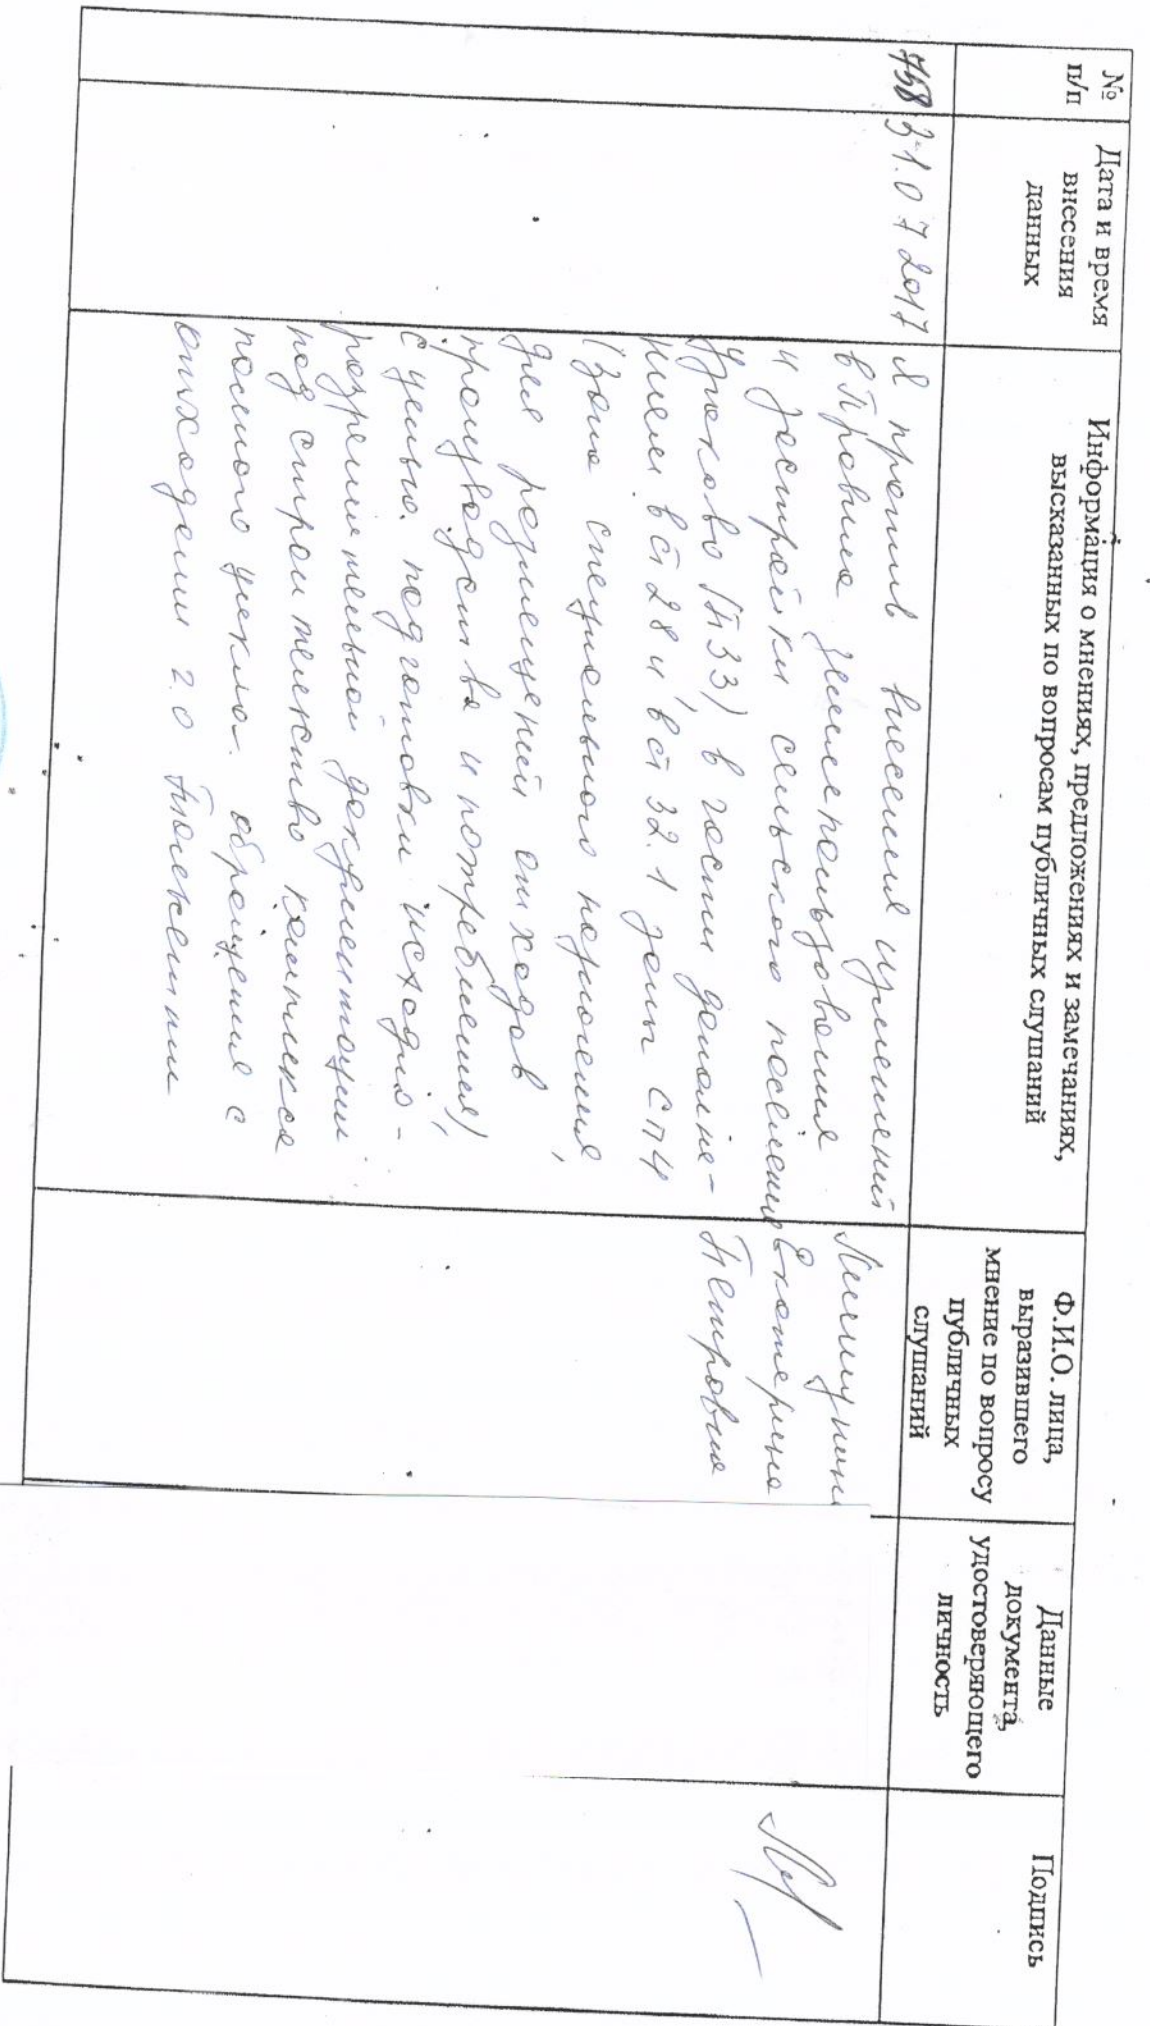 №
п/п
Дата и время
внесения
данных
Информация о мнениях, предложениях и замечаниях,
высказанных по вопросам публичных слушаний
Ф.И.О. лица,
выразившего
мнение по вопросу
публичных
слушаний
Данные
документа,
удостоверяющего
личность
Подпись
758
31.07 2017
Я против внесения изменений
в Правила землепользования
и застройки сельского поселения
(ПЗЗ) в части дополне-
нием в ст 28 и в ст 32.1 зоны СП4
(Зона специального назначения
для размещения отходов
производства и потребления)
с целью подготовки исходно-
разрешительной документации
под строительство комплекса
полного цикла обращения с
отходами г.о
Екатерина
Петровна